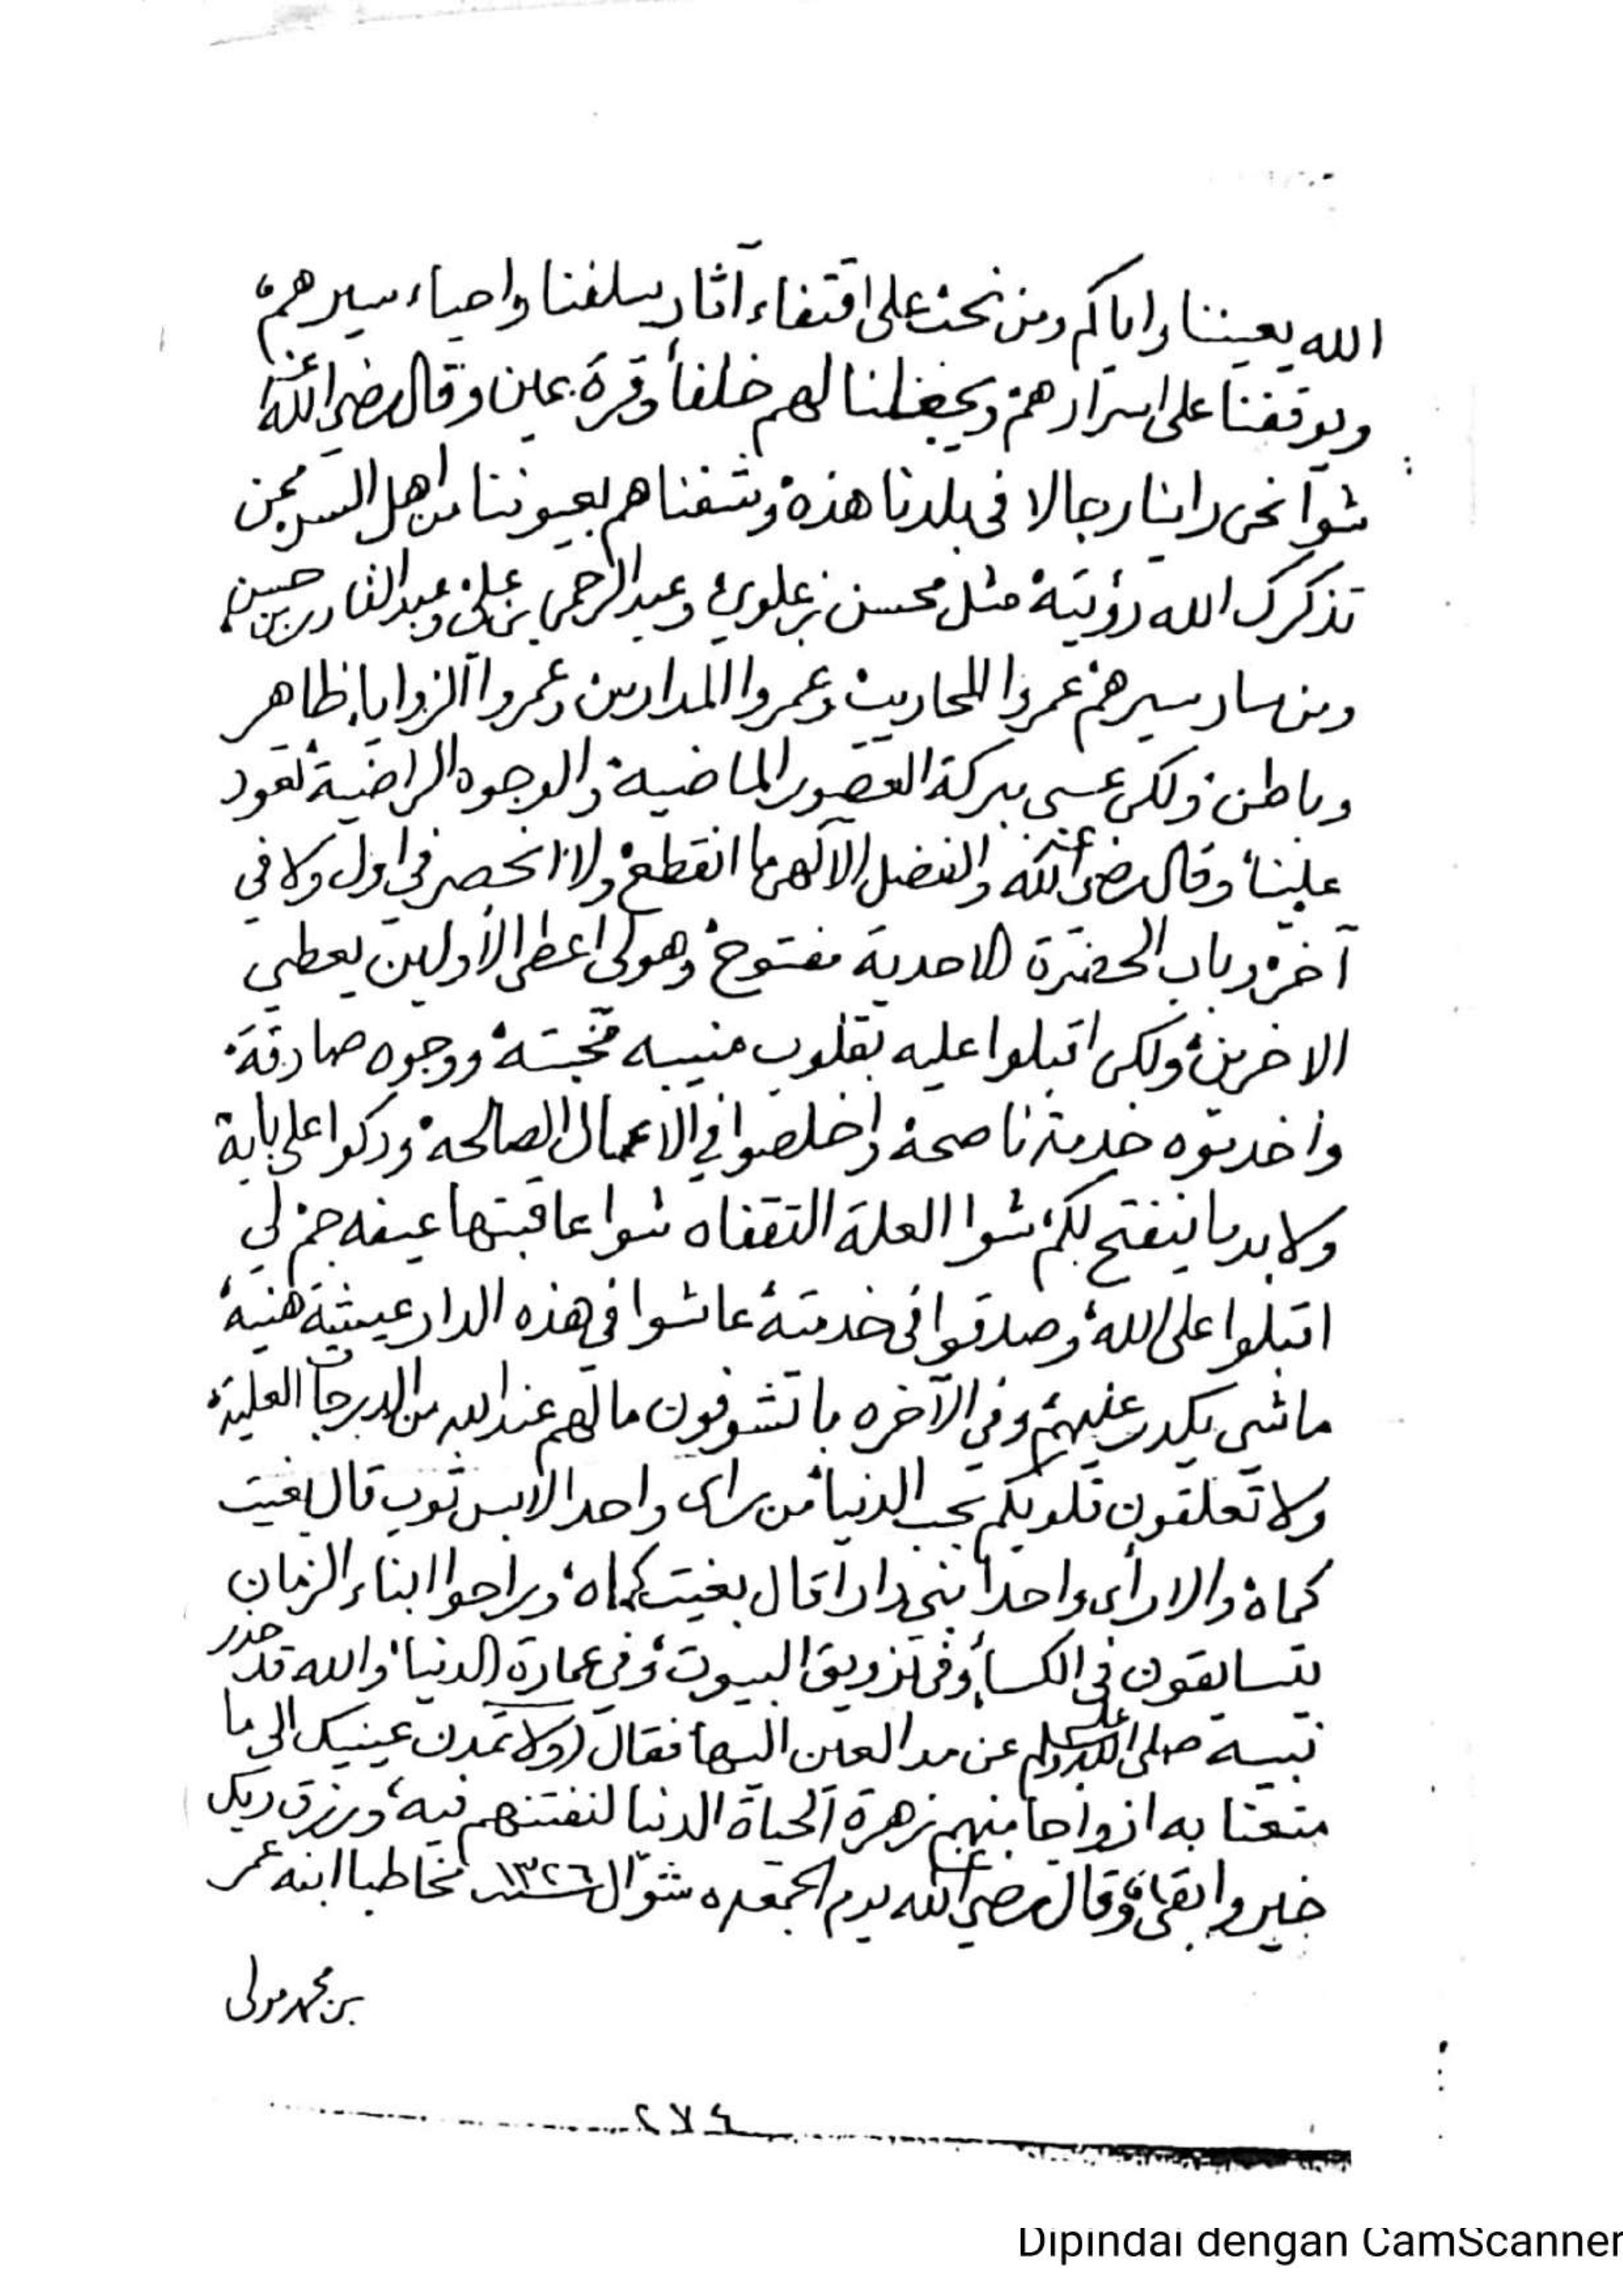 الله يعيننا واياكم ومن نحث على اقتفاء آثار سلفنا واحياء سيرهم
ويوقفنا على اسرارهم ويجعلنا لهم خلفاً وقرة عين وقال رضي الله عنه
شوا نحن راينا رجالا في بلدنا هذه وشفناهم بعيوننا من اهل السر ممن
تذكرك الله رؤيته مثل محسن بن علوي وعبدالرحمن بن علي وعبدالقادر بن حسين
ومن سار سيرهم عمروا المحاريب وعمروا المدارس وعمروا الزوايا، ظاهر
وباطن ولكن عسى ببركة العصور الماضيه والوجوه الراضية تعود
علينا وقال رضي الله عنه والفضل الآلهي ما انقطع ولا انحصر في اول ولا في
آخر وباب الحضرة الاحدية مفتوح وهو لي اعطى الأولين يعطي
الاخرين ولكن اقبلوا عليه بقلوب منيبه مخبته ووجوه صادقة
واخدموه خدمة ناصحة واخلصوا في الاعمال الصالحه ودكوا على بابة
ولا بد ما ينفتح لكم شوا العلة التقفاه شوا عاقبتها عيفه جم لي
اقبلوا على الله وصدقوا في خدمته عاشوا في هذه الدار عيشة هنية
ماشي يكدر عليهم وفي الآخره با تشوفون مالهم عند الله من الدرجات العلية
ولا تعلقون قلوبكم بحب الدنيا من راى واحد الابس ثوب قال بغيت
كماه والا رأى واحداً بنى دارا قال بغيت كماه، وراحوا ابناء الزمان
يتسابقون في الكساء وفي تزويق البيوت وفي عمارة الدنيا والله قد حذر
نبيه صلى الله عليه وسلم عن مد العين اليها فقال (ولا تمدن عينيك الى ما
متعنا به ازواجا منهم زهرة الحياة الدنيا لنفتنهم فيه، ورزق ربك
خير وابقى) وقال رضي الله عنه يوم الجمعه ه شوال سنة ١٣٢٦ مخاطبا ابنه عمر
بن محمد مولى
٢٧٤
Dipindai dengan CamScanner